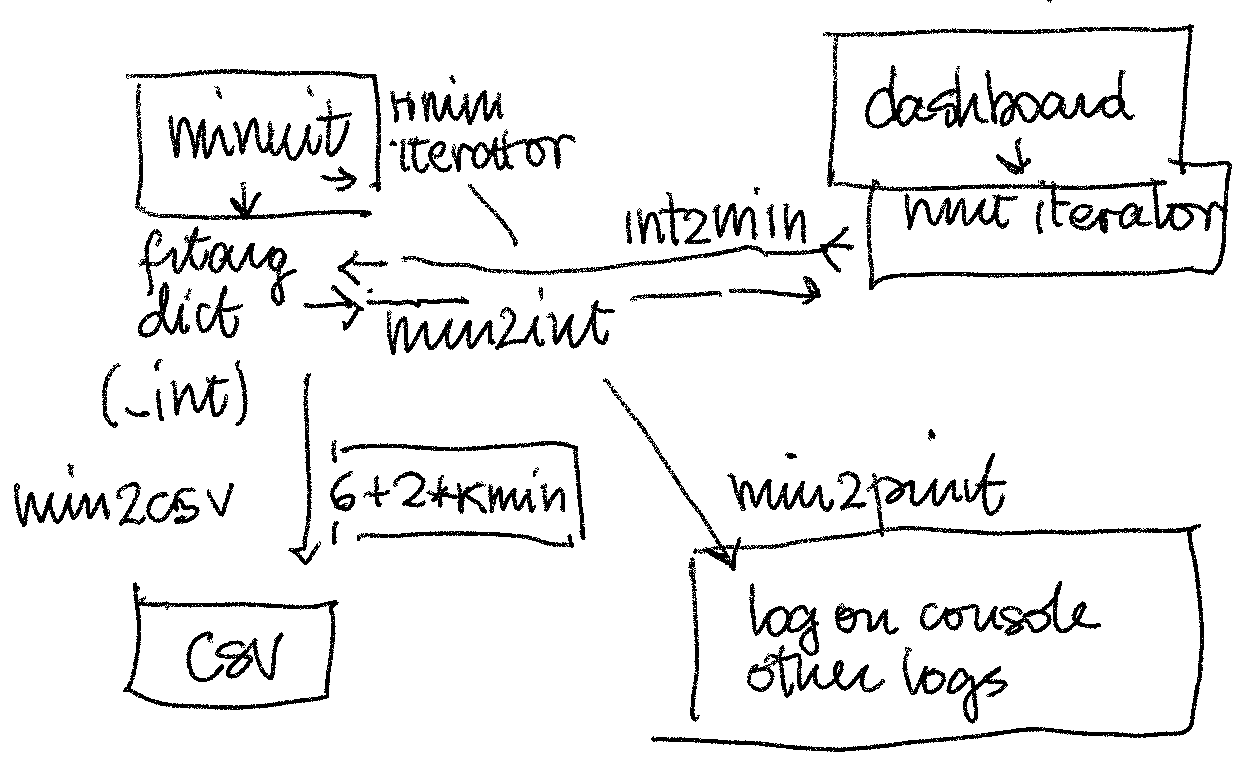 minuit
kmin
iterator
dashboard
iterator
int2min
fitarg
dict
(_int)
min2int
min2csv
6+2*kmin
min2print
csv
log on console
other logs